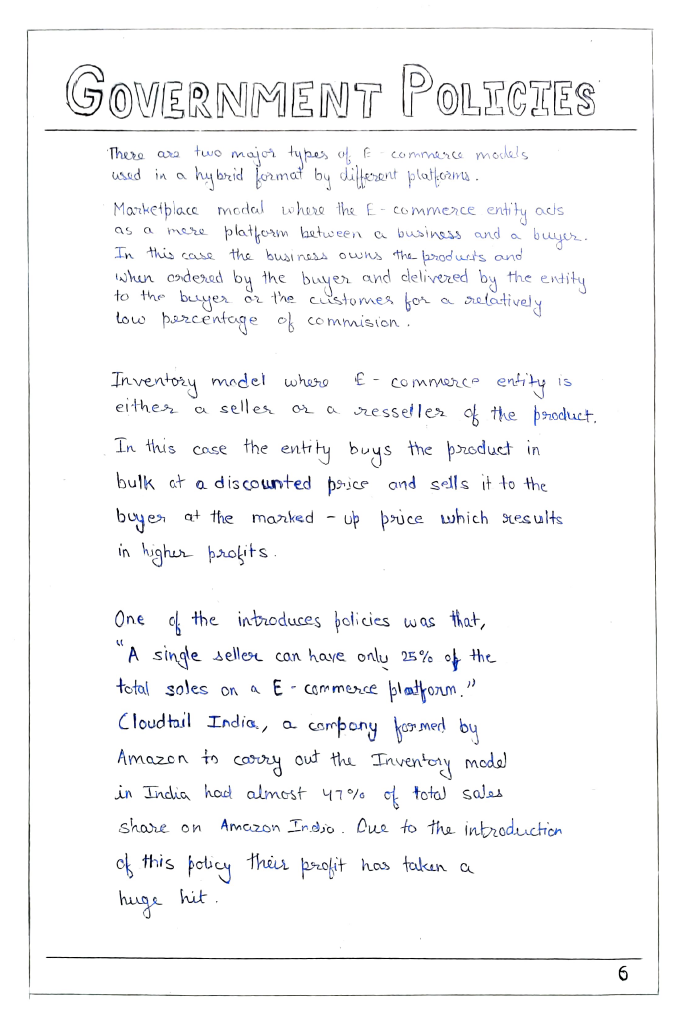 GOVERNMENT POLICIES
There are two major types of E - commerce models
used in a hybrid format by different platforms.
Marketplace modal where the E - commerce entity acts
as a mere platform between a business and a buyer.
In this case the business owns the products and
when ordered by the buyer and delivered by the entity
to the buyer or the customer for a relatively
low percentage of commision.
Inventory model where E - commerce entity is
either a seller or a resseller of the product.
In this case the entity buys the product in
bulk at a discounted price and sells it to the
buyer at the marked - up price which results
in higher profits.
One of the introduces policies was that,
"A single seller can have only 25% of the
total sales on a E - commerce platform."
Cloudtail India, a company formed by
Amazon to carry out the Inventory model
in India had almost 47% of total sales
share on Amazon India. Due to the introduction
of this policy their profit has taken a
huge hit.
6